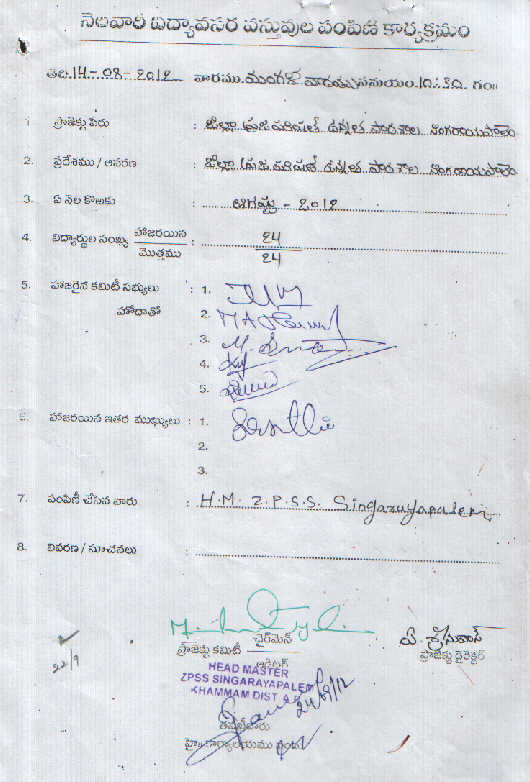 నెలవారి విద్యావసర వస్తువుల పంపిణి కార్యక్రమం
తేది.14-08-2012 వారము.మంగళ వారము సమయం.10:30 గం॥
1 ప్రాజెక్టు పేరు : జిల్లా ప్రజా పరిషత్ ఉన్నత పాఠశాల సింగరాయపాలెం
2. ప్రదేశము / ఆవరణ : జిల్లా ప్రజా పరిషత్ ఉన్నత పాఠశాల సింగరాయపాలెం
3. ఏ నెల కొఱకు : ఆగష్టు - 2012
4. విద్యార్థుల సంఖ్య హాజరయిన : 24
మొత్తము 24
5. హాజరైన కమిటీ సభ్యులు : 1.
హోదాతో 2.
3.
4.
5.
6. హాజరయిన ఇతర ముఖ్యులు : 1.
2.
3.
7. పంపిణీ చేసిన వారు : H.M. Z.P.S.S. Singarayapalem
8. వివరణ / సూచనలు :
చైర్‌మెన్
ప్రాజెక్టు కమిటీ
ప్రాజెక్టు డైరెక్టర్
22/9
HEAD MASTER
ZPSS SINGARAYAPALEM
KHAMMAM DIST A.P
24/09/12